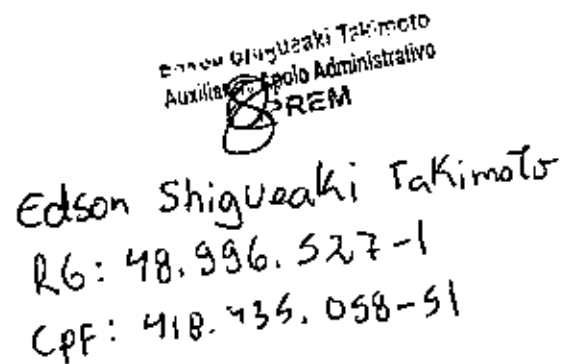 Edson Shigueaki Takimoto
Auxiliar Apoio Administrativo
PREM
Edson Shigueaki Takimoto
RG: 48.996.527-1
CPF: 418.435.058-51